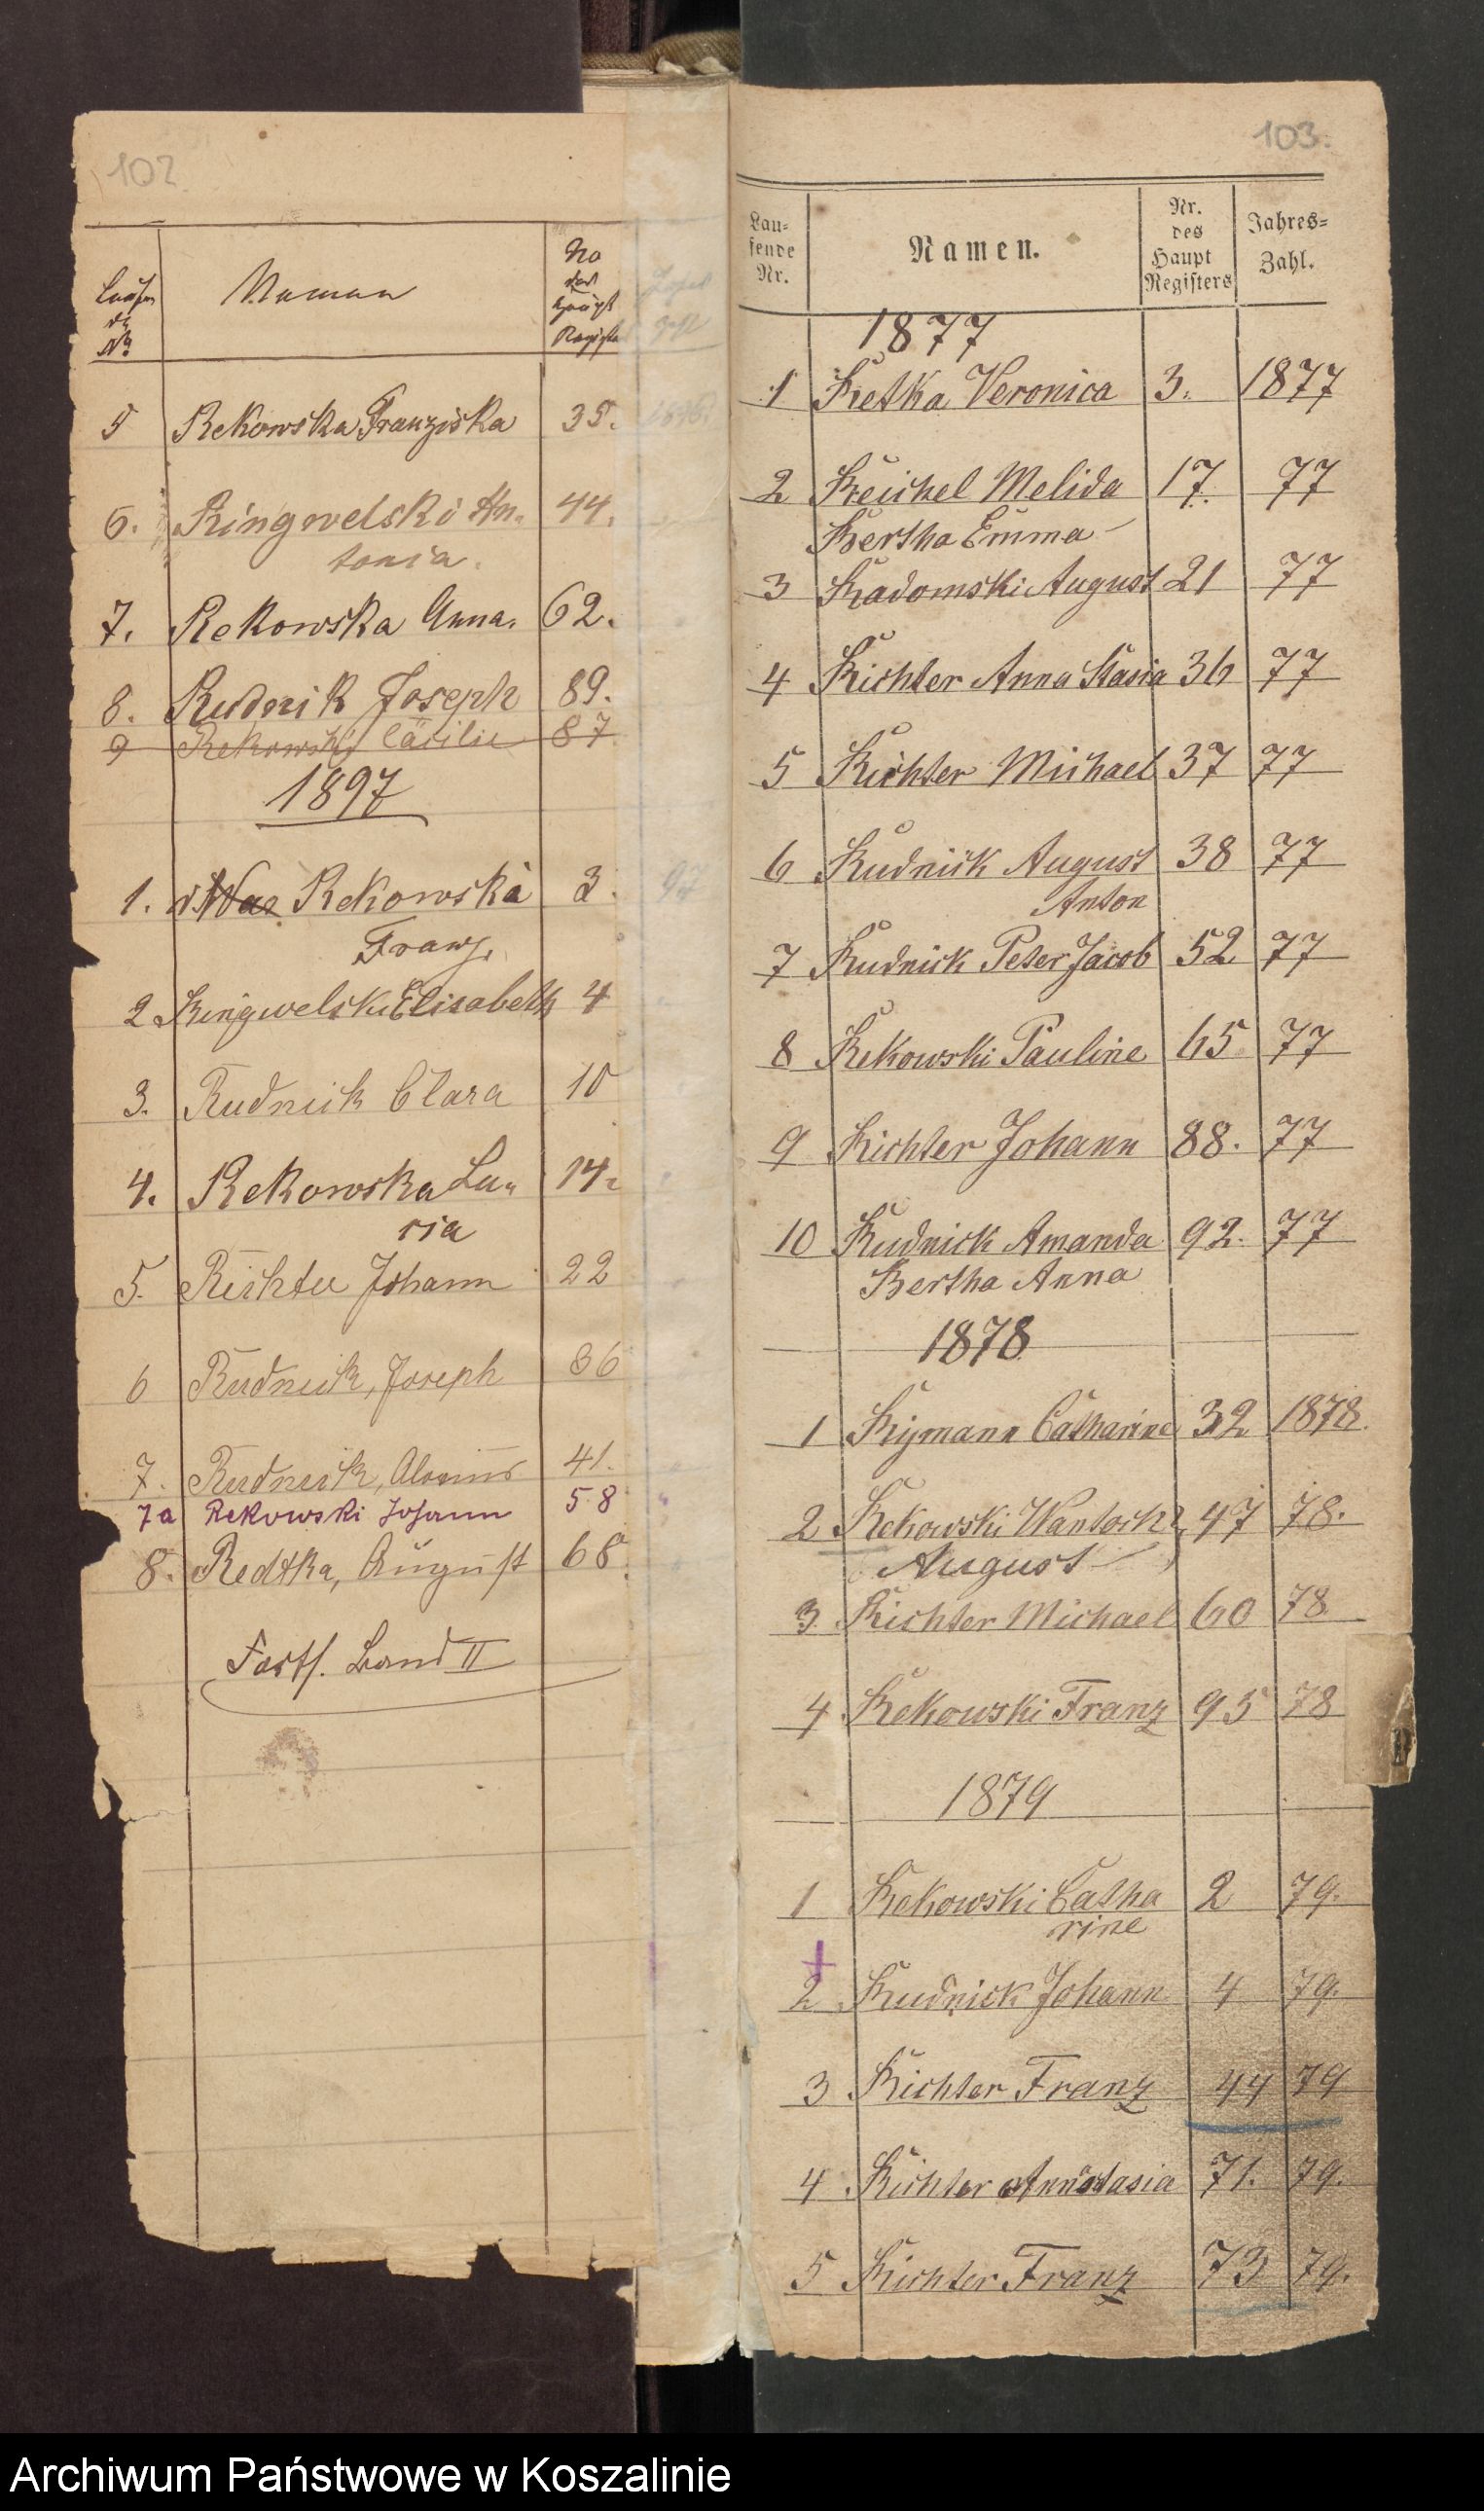 102
Laufen
de
No
Namen
No
des
Haupt
Registers
5 Rekowska Franziska 35.
6. Ringwelski An-
tonia.
44.
7. Rekowska Anna. 62.
8. Rudnik Joseph 89.
9 Rekowski Cäcilie 87
1897
1. v. Rekowski 3.
Franz,
2 Ringwelski Elisabeth 4
3. Rudnick Clara 10
4. Rekowska Lu- 14.
cia
5. Richter Johann 22
6 Rudnick, Joseph 36
7. Rudnick, Aloisius 41.
7a Rekowski Johann 58
8. Redtka, August 68.
Forts. Band II
103.
Lau-
fende
Nr.
Namen.
Nr.
des
Haupt
Registers
Jahres-
Zahl.
1877
1 Retka Veronica 3. 1877
2 Reickel Melida 17. 77
Bertha Emma
3 Radomski August 21 77
4 Richter Anna Stasia 36 77
5 Richter Michael 37 77
6 Rudnick August 38 77
Anton
7 Rudnick Peter Jacob 52 77
8 Rekowski Pauline 65 77
9 Richter Johann 88. 77
10 Rudnick Amanda 92. 77
Bertha Anna
1878
1 Rymann Catharine 32 1878.
2 Rekowski Wantoch 47 78.
August
3. Richter Michael 60 78
4 Rekowski Franz 95 78
1879
1 Rekowski Catha 2 79.
rine
2 Rudnick Johann 4 79.
3 Richter Franz 44 79
4 Richter Annastasia 71. 79.
5 Richter Franz 73 79.
Archiwum Państwowe w Koszalinie